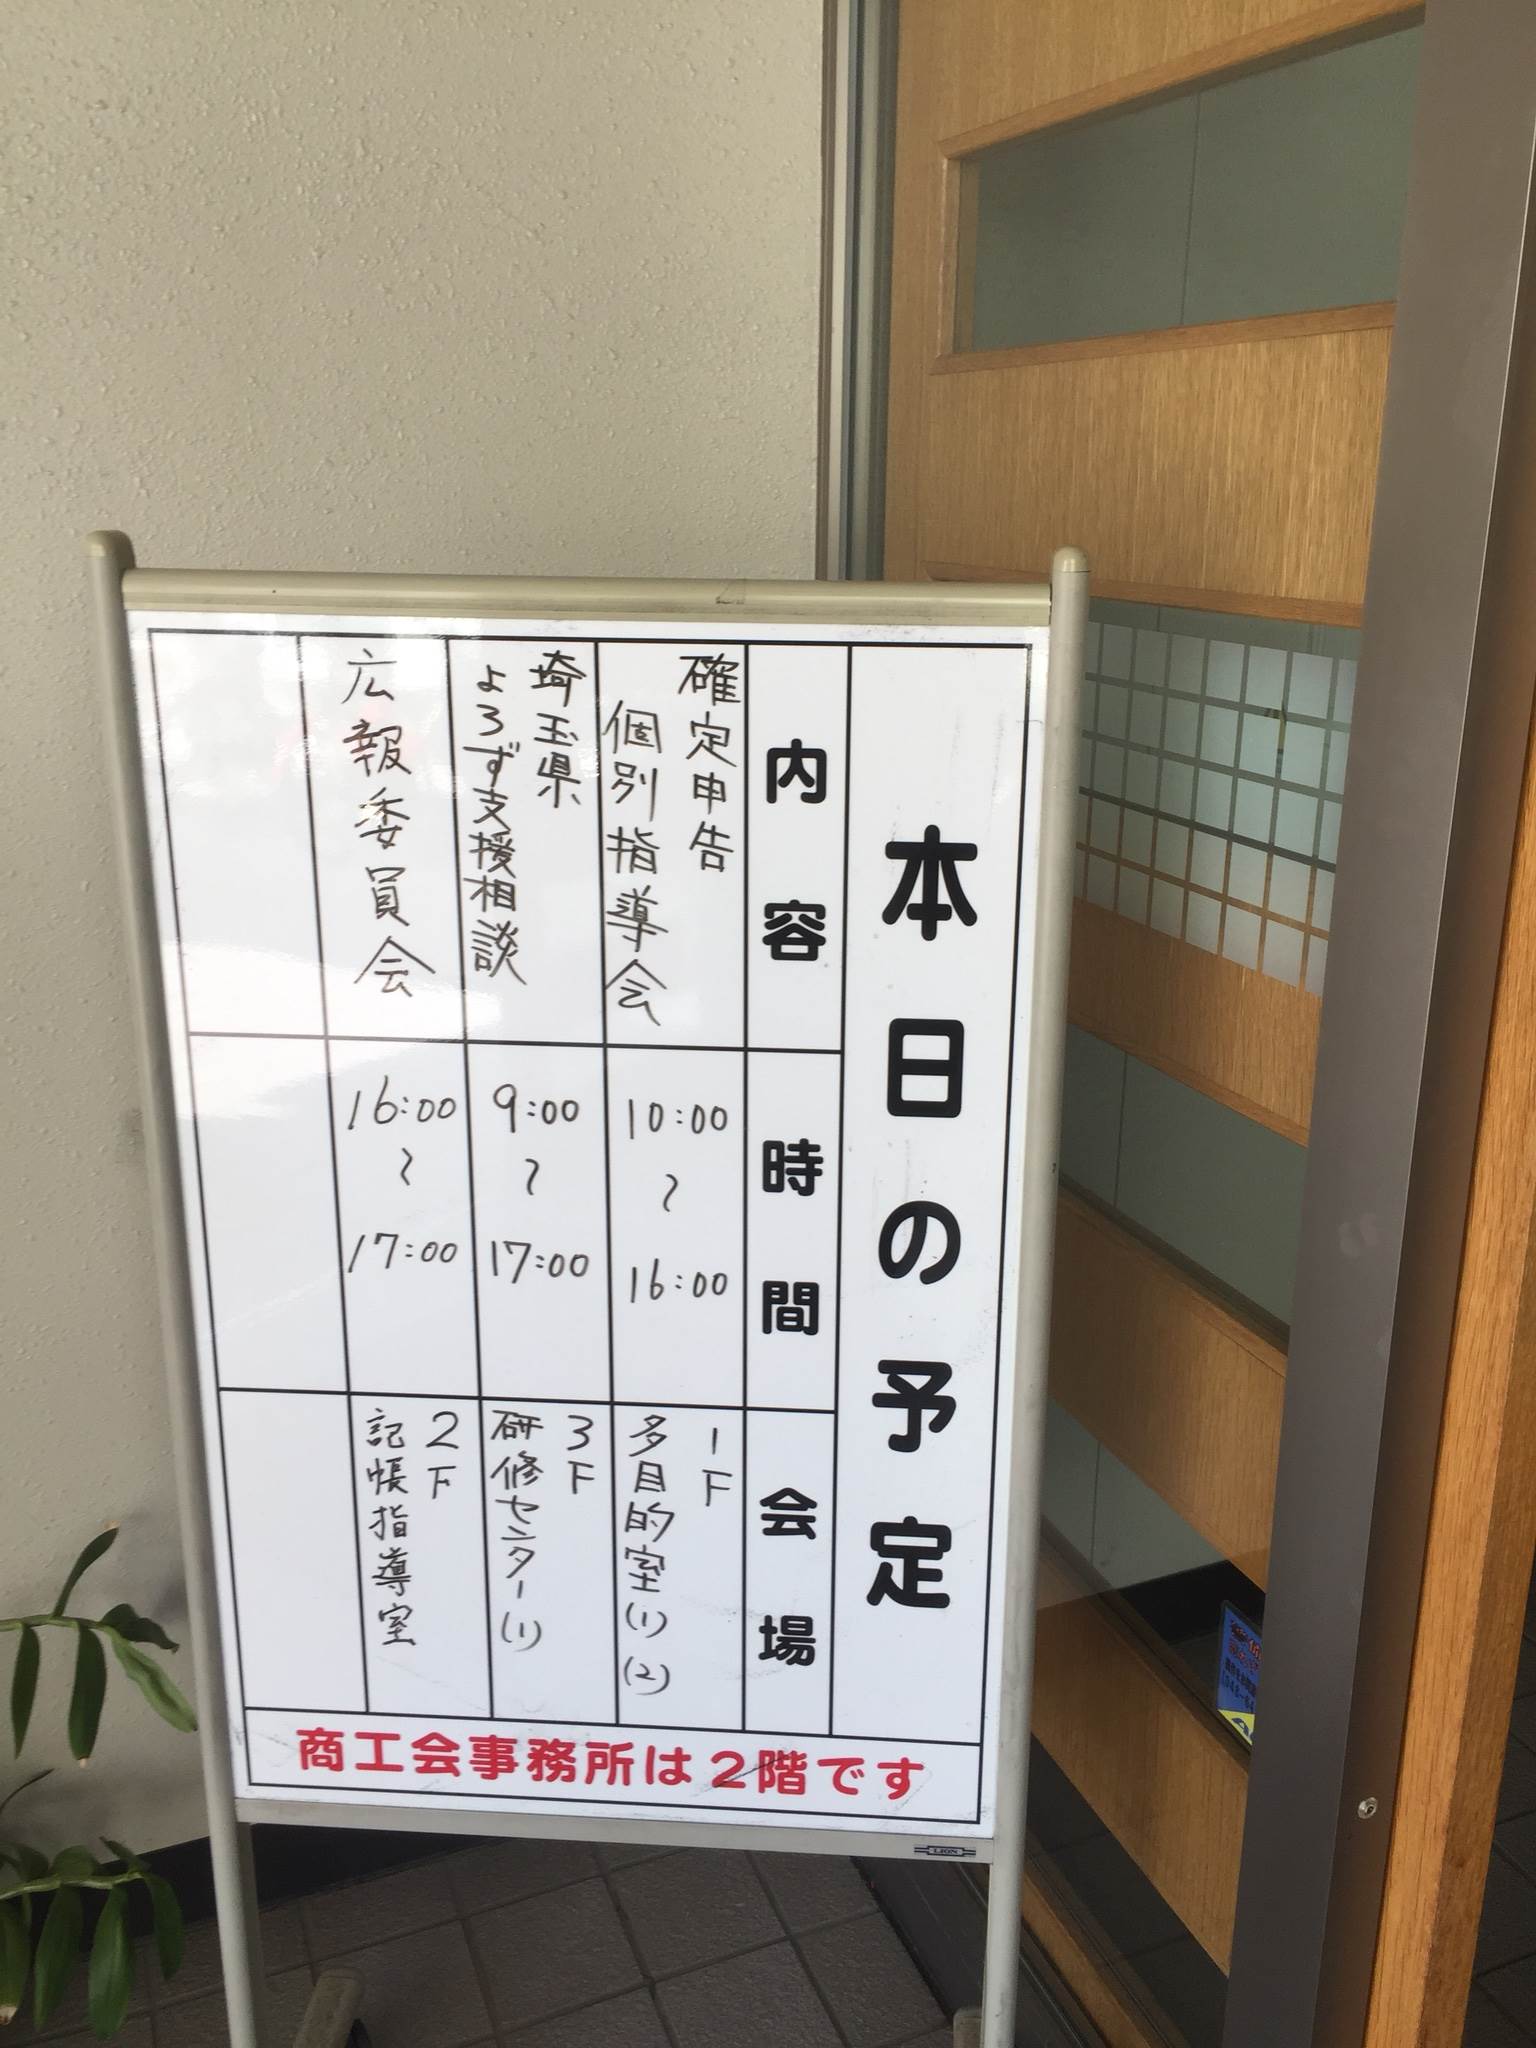 本日の予定
内容
時間
会場
確定申告
個別指導会
10:00
〜
16:00
1F
多目的室(1)(2)
埼玉県
よろず支援相談
9:00
〜
17:00
3F
研修センター(1)
広報委員会
16:00
〜
17:00
2F
記帳指導室
商工会事務所は2階です
LION